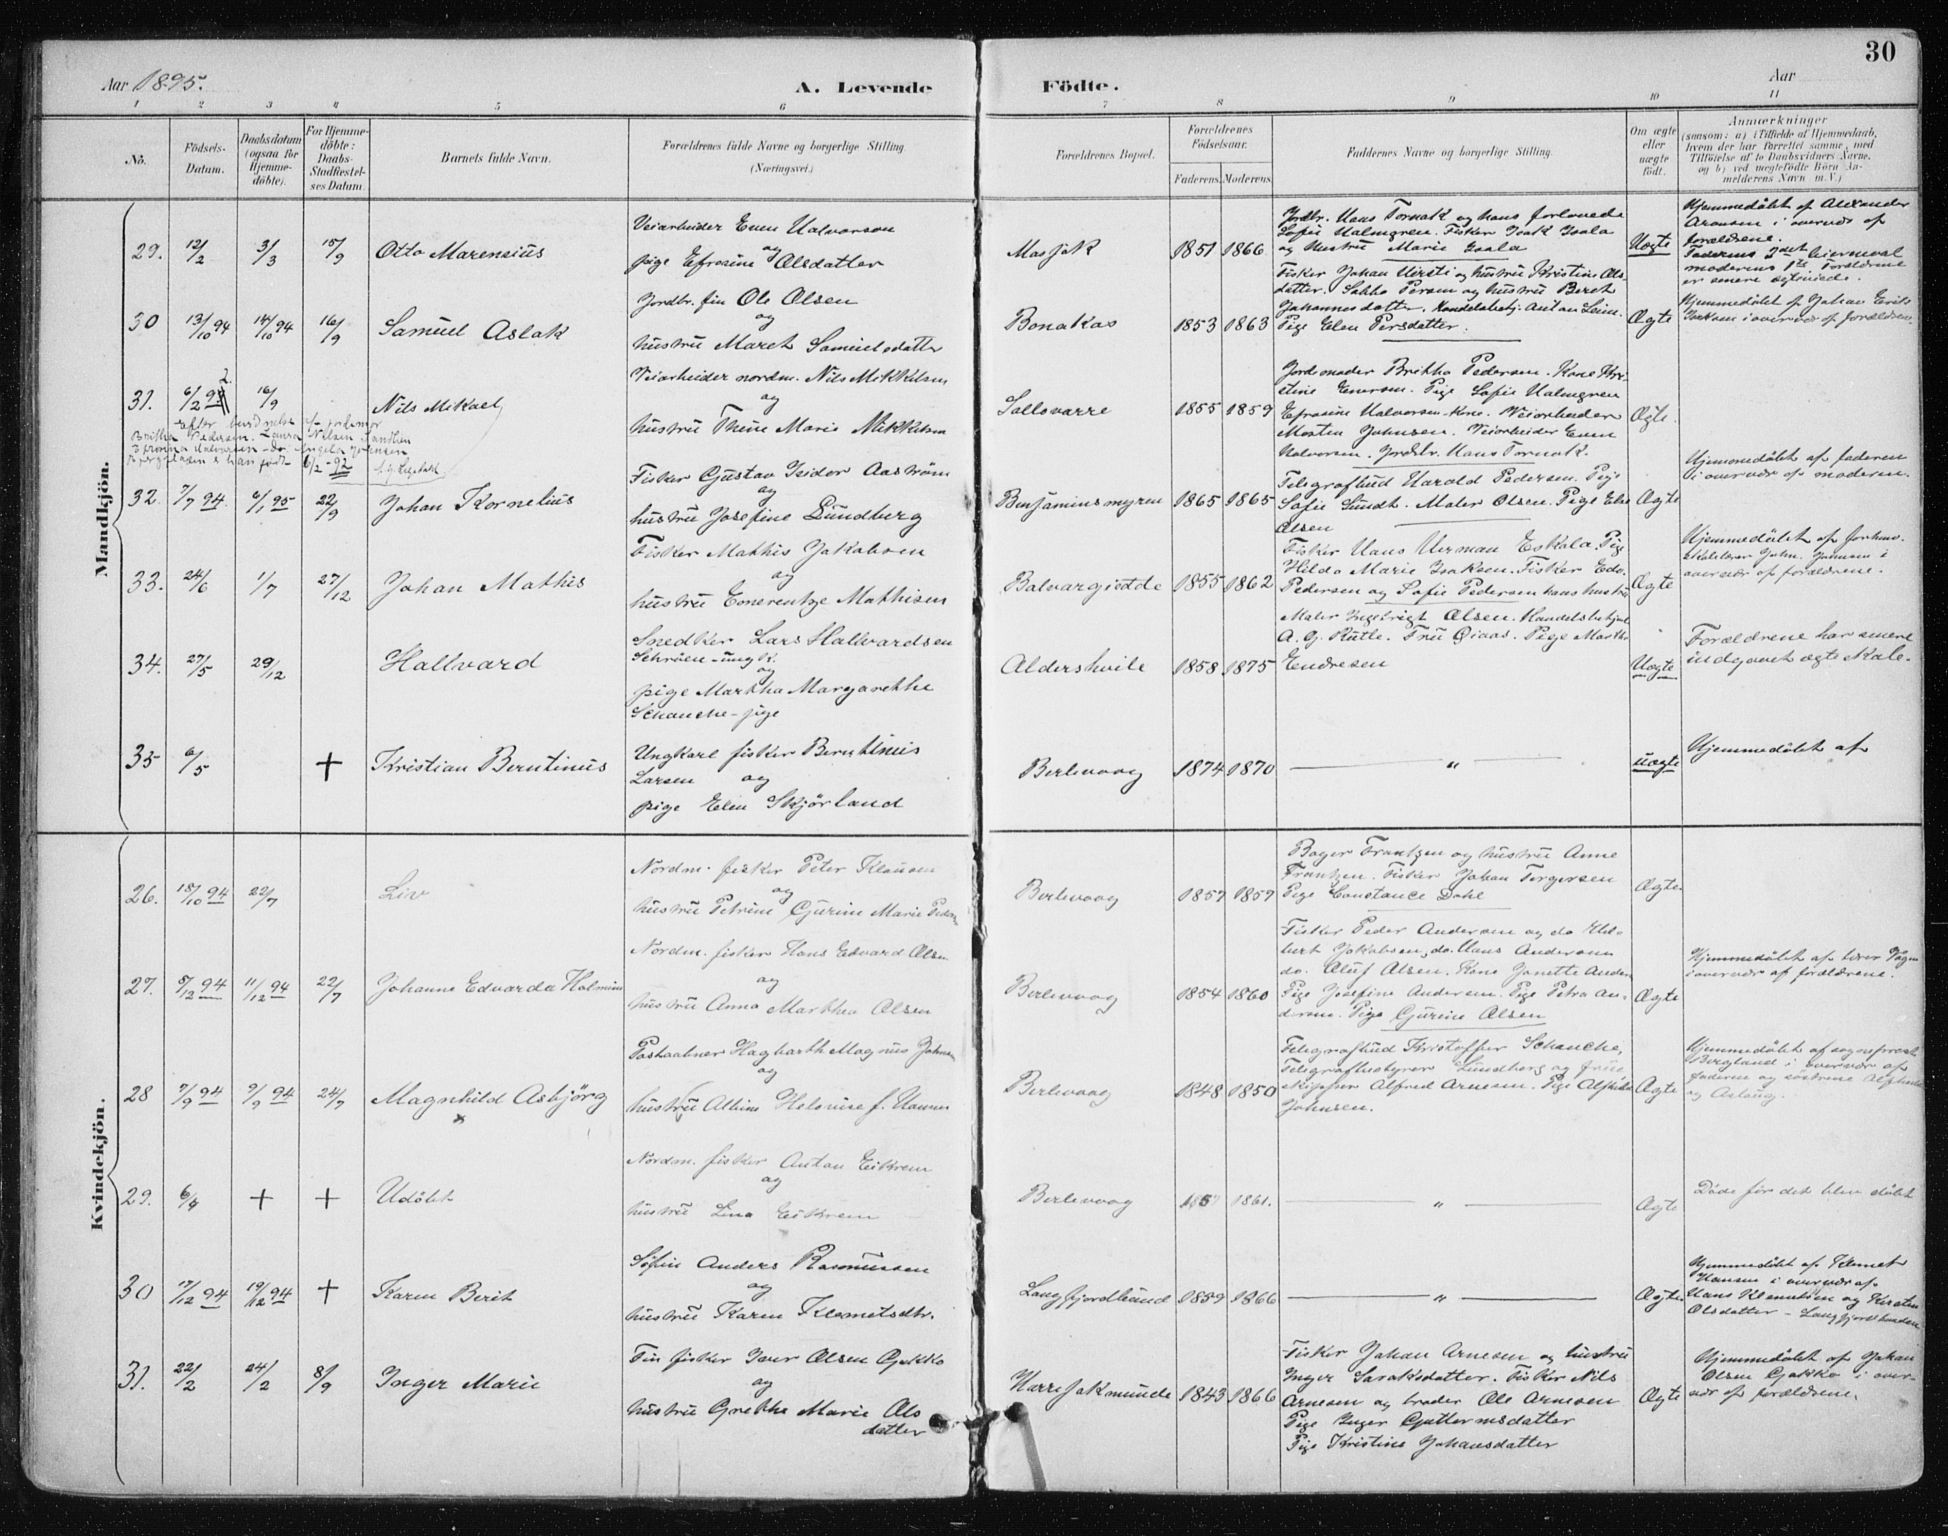 30
Aar 1895.
A. Levende
Födte.
Aar
1 2 3 4 5 6 7 8 9 10 11
No.
Födsels-
Datum.
Daabsdatum
(ogsaa for
Hjemme-
döbte).
For Hjemme-
döbte:
Daabs-
Stadfæstel-
ses Datum.
Barnets fulde Navn.
Forældrenes fulde Navne og borgerlige Stilling.
(Næringsvei.)
Forældrenes Bopæl.
Forældrenes
Födselsaar.
Faderens. Moderens.
Faddernes Navne og borgerlige Stilling.
Om ægte
eller
uægte
födt.
Anmærkninger
(saasom: a) i Tilfælde af Hjemmedaab,
hvem der har forrettet samme, med
Tilföielse af to Daabsvidners Navne,
og b) ved uægtefödte Börn An-
melderens Navn m. V.)
Mandkjön.
29. 12/2 3/3 15/9 Otto Marensius
Veiarbeider Even Halvorsen
og
pige Efrosine Olsdatter
Masjok 1851 1866
Jordbr. Hans Tornak og hans forlovede
Sofie Halmgren. Fisker Isak Isala
og hustru Marie Isala
Uægte
Hjemmedöbt af Alexander
Aronsen i overvær af
forældrene.
30 13/10 94 14/10 94 16/9 Samuel Aslak
Jordbr. fin Ole Olsen
og
hustru Maret Samuelsdatter
Bonakas 1853 1863
datter. Sabba Persen og hustru Beret
Johannesdatter. Handelsbetj. Anton Leim.
Pige Elen Persdatter.
Ægte
31. 6/2 92 16/9 Nils Mikael
Veiarbeider nordm. Nils Mikkelsen
og
hustru Thrine Marie Mikkelsen
Sallovarre 1855 1859
Jordemoder Britha Pedersen. Kone Kri-
stine Enersen. Pige Sofie Halmgren
Efrosine Halvorsen-kone. Veiarbeider
Morten Johnsen. Veiarbeider Even
Halvorsen. Jordbr. Hans Tornak.
Ægte.
32. 7/7 94. 6/1 95 22/9 Johan Kornelius
Fisker Gustav Isidor Aaström
og
hustru Josefine Lundberg
Benjaminsmyren 1865 1865
Telegrafbud Harald Pedersen. Pige
Sofie Lundh. Maler Olsen. Pige Else
Olsen
Ægte
Hjemmedöbt af faderen
i overvær af moderen.
33. 24/6 1/7 27/12 Johan Mathis
Fisker Mathis Jakobsen
og
hustru Emerentze Mathisen
Balvargiedde 1855 1862
Fisker Hans Herman Eskala. Pige
Hilda Marie Isaksen. Fisker Edv.
Pedersen og Sofie Pedersen hans hustru
Ægte
34. 27/5 29/12 Hallvard
Snedker Lars Hallvardsen
Schröen-ungk.
og
pige Martha Margarethe
Schanche-pige
Aldershvile 1858 1875
Maler Ingebrigt Olsen. Handelsbetjent
A. G. Rutle. Fru Qvaas. Pige Marthe
Endresen
Uægte
Forældrene har senere
indgaaet ægteskab.
35 6/5 + Kristian Berntinus
Ungkarl fisker Berntinus
Larsen og
pige Elen Skjörland
Berlevaag 1874 1870
"
uægte
Hjemmedöbt af
Kvindekjön.
26. 18/10 94 22/7 Liv
Nordm. fisker Peter Klausen
og
hustru Petrine Gurine Marie Peders.
Berlevaag 1857 1857
Bager Frantzen og hustru Anne
Frantzen. Fisker Johan Torgersen
Pige Constance Dahl
Ægte
27. 8/12 94 11/12 94 22/7 Johanne Edvarda Halmine
Nordm. fisker Hans Edvard Olsen
og
hustru Anna Marthea Olsen
Berlevaag 1854 1860
Fisker Peder Andersen og do Hil-
bert Jakobsen, do. Hans Andersen
do. Oluf Olsen. Kone Janette Ander.
Pige Josefine Andersen. Pige Petra An-
dersen. Pige Gurine Olsen
Ægte
i overvær af forældrene.
28 7/9 94 9/9 94 24/7 Magnhild Asbjörg
Postaabner Hagbarth Magnus Johnsen
og
hustru Albine Helovise f. Hanna
Berlevaag 1848 1850
Telegrafbud Kristoffer Schanche,
Telegrafbestyrer Lundberg og frue
Alfred Arnesen. Pige Alfhilda
Johnsen.
Ægte
Hjemmedöbt af sogneprest
Bergland i overvær af
faderen og söstrene Alfhilda
og Aslaug.
29. + + Udöbt
Nordm. fisker Anton Eikrem
og
hustru Lina Eikrem
Berlevaag 1861.
"
Ægte
Döde för det blev döbt
30 17/12 94 19/12 94 + Karen Berit
Söfin Anders Rasmussen
og
hustru Karen Klemetsdtr.
Langfjordbund 1859 1866
"
Ægte.
Hjemmedöbt af Klemet
Hansen i overvær af
Hans Klemetsen og Kirsten
Olsdatter - Langfjordbunden
31. 22/2 24/2 8/9 Inger Marie
Fin fisker Iver Olsen Gakko
og
hustru Grethe Marie Ols
datter
Harrejokmunde 1843 1866
Fisker Johan Arnesen og hustru
Inger Saraksdatter. Fisker Nils
Arnesen og broder Ole Arnesen
Pige Inger Guttormsdatter
Pige Kristine Johansdatter
Ægte
Hjemmedöbt af Johan
Olsen Gakko i over-
vær af forældrene.